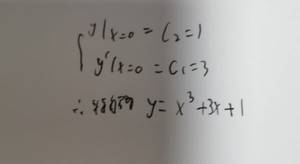 { y|x=0 = C₂=1
y'|x=0 = C₁=3
∴ y= x³+3x+1